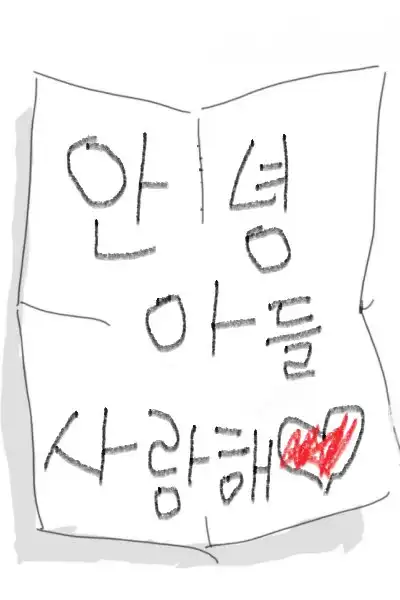 안녕
아들
사랑해♥